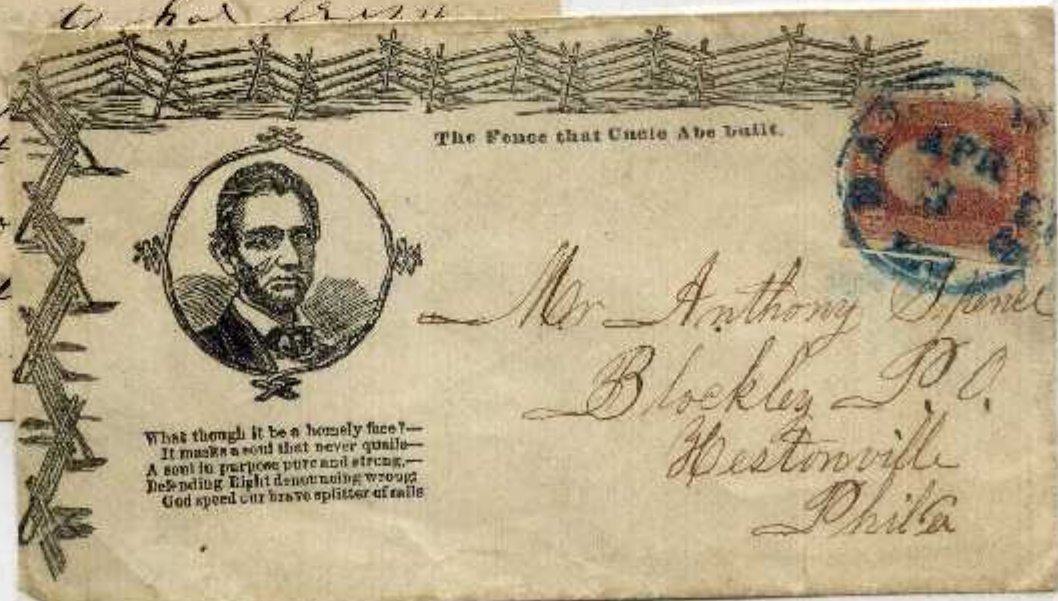 The Fence that Uncle Abe built.
APR
What though it be a homely face?—
It masks a soul that never quails—
A soul in purpose pure and strong,—
Defending Right denouncing wrong:
God speed our brave splitter of rails
Mr Anthony
Blockley P. O.
Hestonville
Phila